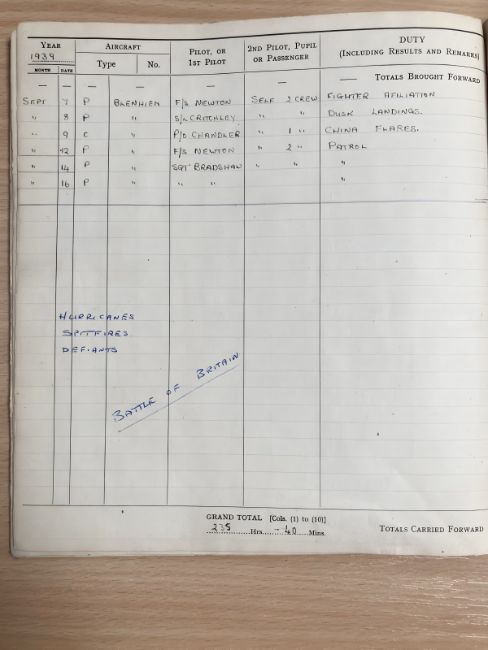 YEAR AIRCRAFT PILOT, OR 1ST PILOT 2ND PILOT, PUPIL OR PASSENGER DUTY (INCLUDING RESULTS AND REMARKS)
1939
MONTH DATE Type No.
— — — — — — — TOTALS BROUGHT FORWARD
SEPT 7 P BLENHIEM F/S NEWTON SELF 2 CREW FIGHTER AFILIATION
" 8 P " S/L CRITCHLEY " " DUSK LANDINGS.
" 9 C " P/O CHANDLER " 1 " CHINA FLARES.
" 12 P " F/S NEWTON " 2 " PATROL
" 14 P " SGT BRADSHAW " " "
" 16 P " " " "
HURRICANES
SPITFIRES
DEFIANTS
BATTLE OF BRITAIN
GRAND TOTAL [Cols. (1) to (10)]
235 Hrs. 40 Mins.
TOTALS CARRIED FORWARD